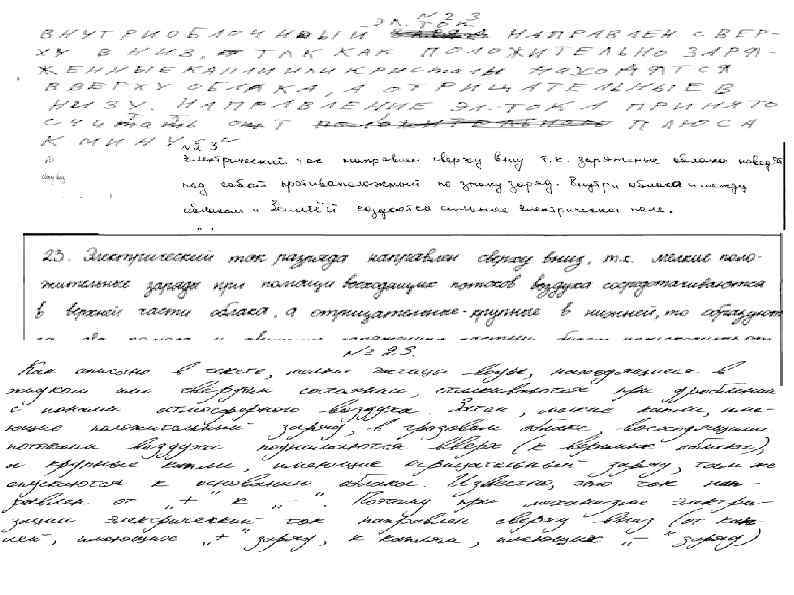 № 23
ЭЛ. ТОК
ВНУТРИОБЛОЧНЫЙ НАПРАВЛЕН СВЕР-
ХУ ВНИЗ, ТАК КАК ПОЛОЖИТЕЛЬНО ЗАРЯ-
ЖЕННЫЕ КАПЛИ ИЛИ КРИСТАЛЫ НАХОДЯТСЯ
ВВЕРХУ ОБЛАКА, А ОТРИЦАТЕЛЬНЫЕ В
НИЗУ. НАПРАВЛЕНИЕ ЭЛ. ТОКА ПРИНЯТО
СЧИТАТЬ ОТ ПЛЮСА
К МИНУ
№23
Электрический ток направлен сверху вниз т.к. заряженные облака
под собой противоположный по знаку заряд. Внутри облака и между
облаком и Землёй создаются сильное электрическое поле.
23. Электрический ток разряда направлен сверху вниз, т.к. мелкие поло-
жительные заряды при помощи восходящих потоков воздуха сосредотачиваются
в верхней части облака, а отрицательные-крупные в нижней, то образуют
№ 23.
Как описано в тексте, частицы воды, находящиеся в
жидком или твёрдом состоянии, сталкиваются при
с атмосферного воздуха. Затем, мелкие капли, име-
ющие положительный заряд, в грозовом облаке, восходящими
потоками воздуха поднимаются вверх (к вершине облака),
и крупные капли, имеющие отрицательный заряд, там же
опускаются к основанию облака. Известно, что ток нап-
равлен от „+“ к „–“. Поэтому при механизме электри-
зации электрический ток направлен сверху вниз (от кап-
лей, имеющие „+“ заряд, к каплям, имеющих „–“ заряд)